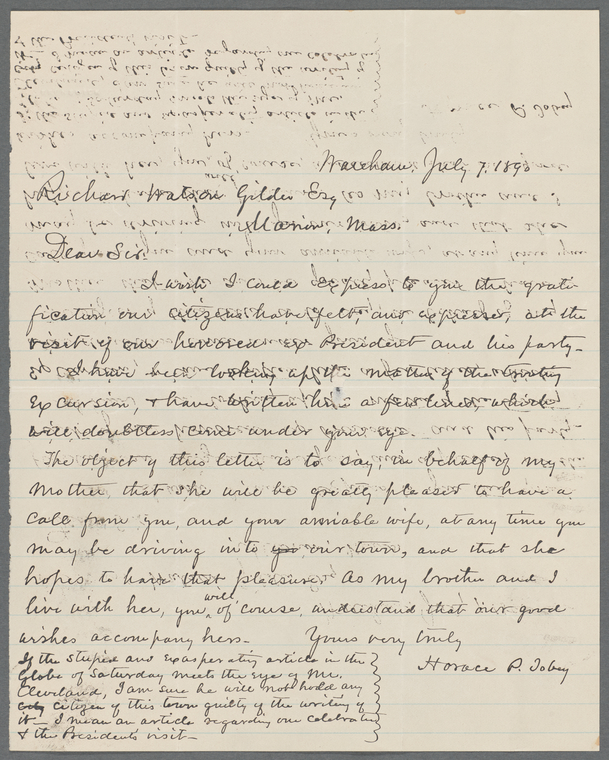 Wareham, July 7. 1890
Richard Watson Gilder Esq
Marion, Mass.
Dear Sir.
I wish I could express to you the grati-
fication our citizens have felt, and expressed, at the
visit of our honored ex President and his party—
I have been looking after the matter of the
excursion, & have written him a few lines, which
will doubtless come under your eye.
The object of this letter is to say, in behalf of my
mother that she will be greatly pleased to have a
call from you, and your amiable wife, at any time you
may be driving in to you our town, and that she
hopes to have that pleasure. As my brother and I
will
live with her, you, of course, understand that our good
wishes accompany hers— Yours very truly
Horace P. Tobey
If the stupid and exasperating article in the
Globe of Saturday meets the eye of Mr.
Cleveland, I am sure he will not hold any
city citizen of this town guilty of the writing of
it— I mean an article regarding our celebration
& the President's visit—